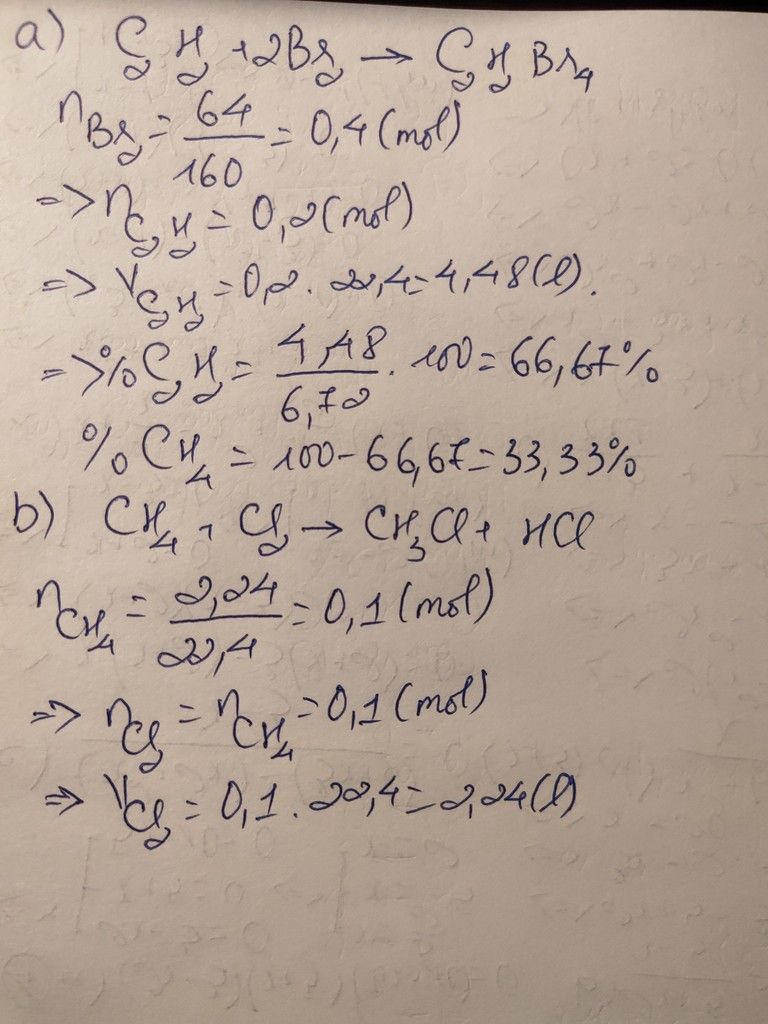 a) C₂H₂ + 2Br₂ → C₂H₂Br₄
nBr₂ = 64/160 = 0,4 (mol)
=> nC₂H₂ = 0,2 (mol)
=> VC₂H₂ = 0,2 . 22,4 = 4,48 (l).
=> %C₂H₂ = 4,48/6,72 . 100 = 66,67%
%CH₄ = 100 - 66,67 = 33,33%
b) CH₄ + Cl₂ → CH₃Cl + HCl
nCH₄ = 2,24/22,4 = 0,1 (mol)
=> nCl₂ = nCH₄ = 0,1 (mol)
=> VCl₂ = 0,1 . 22,4 = 2,24 (l)